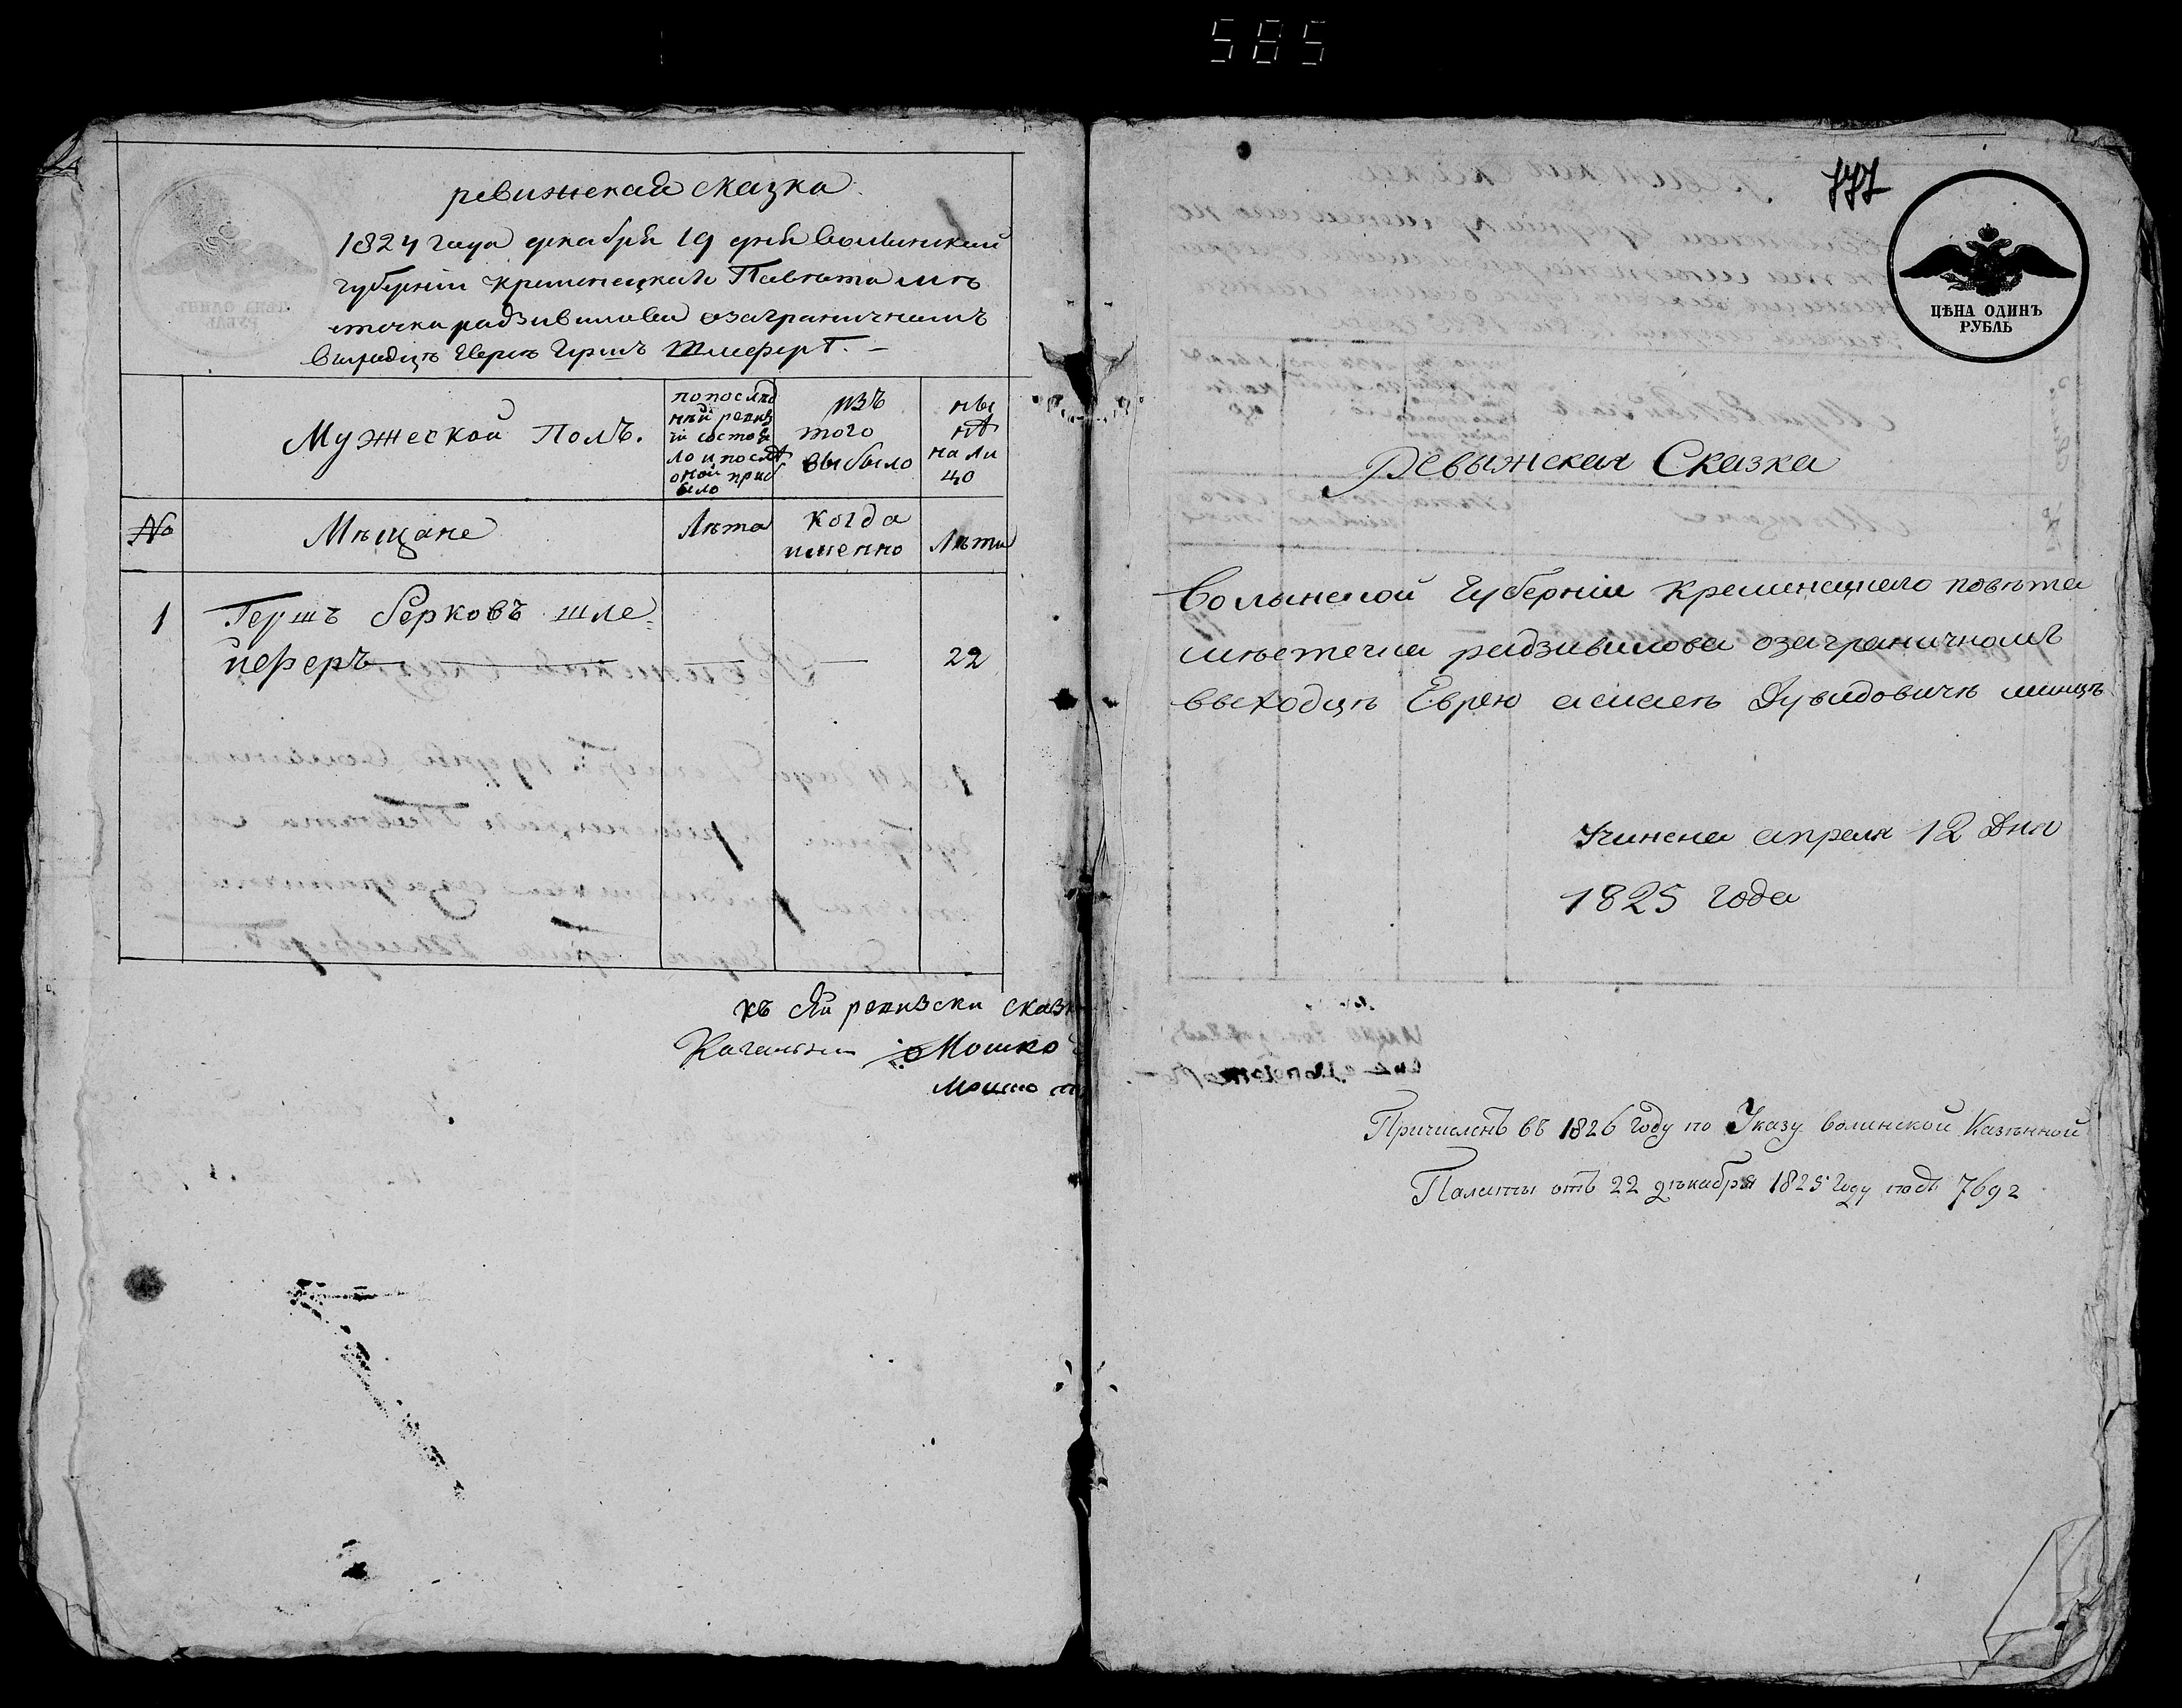 585
ревижская сказка
1824 года декабря 19 дня волинской
губернии кременецкаго Повѣта мѣ
стечка радзивилова озаграничномъ
Герсъ
Мужеской Полъ.
попослѣд
ней ревиз
ги состоя
ло и послѣ
оной приб
было
изъ
того
выбыло
ны
нѣ
на ли
цо
№
Мѣщане
Лѣта
когда
именно
Лѣта
1
Гершъ Берковъ шле
йферъ
22
къ сей ревизски сказк
Мошко
777
ЦѢНА ОДИНЪ
РУБЛЬ
Ревыжская Сказка
Волынской Губернии Кременецкого повѣта
мѣстечка радзивилова озаграничномъ
выходцѣ Еврею Дувидовичѣ минцъ
Учинена апреля 12 Дня
1825 года
Причисленъ въ 1826 году по Указу волинской Казѣнной
Палаты отъ 22 дѣкабря 1825 году подъ 7692